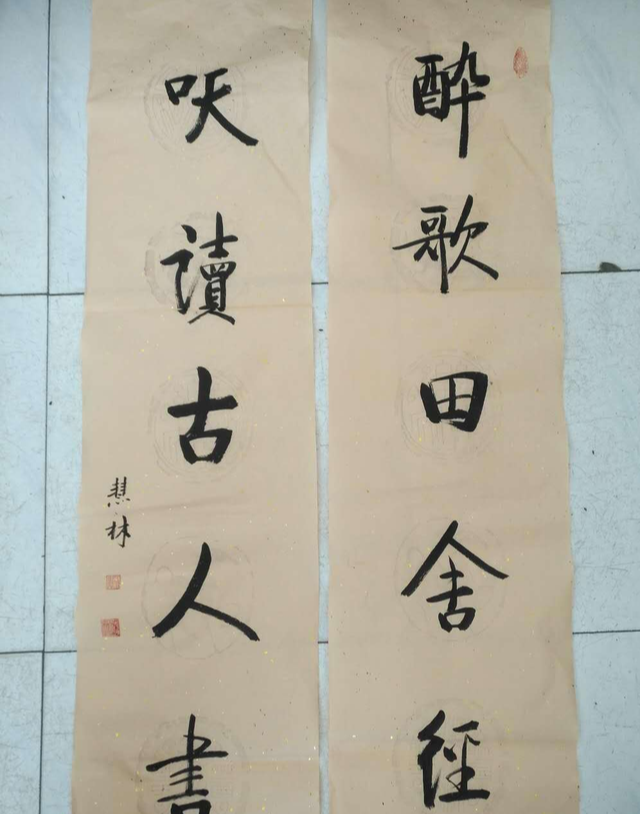 醉歌田舍徑
讀古人書
慧林